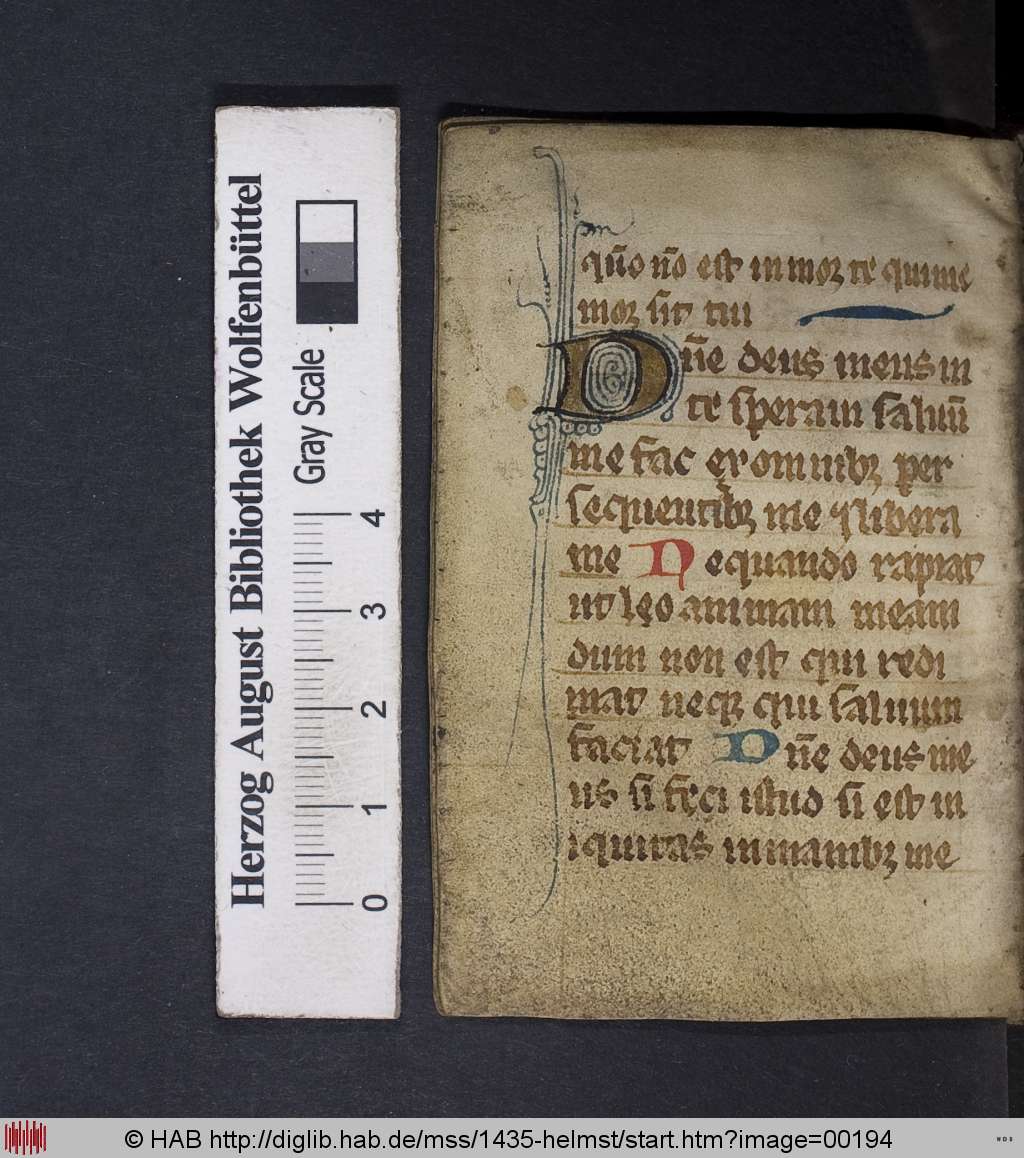 Herzog August Bibliothek Wolfenbüttel
Gray Scale
0 1 2 3 4
qño nō est in morꝫ te qui me
morꝫ sit tui
Dn̄e deus meus in
te speraui saluū
me fac ex omnibꝫ per
sequentibꝫ me ⁊ libera
me Nequando rapiat
ut leo animam meam
dum non est qui redi
mat neqꝫ qui saluum
faciat Dn̄e deus me
us si feci istud si est in
iquitas in manibꝫ me
© HAB http://diglib.hab.de/mss/1435-helmst/start.htm?image=00194